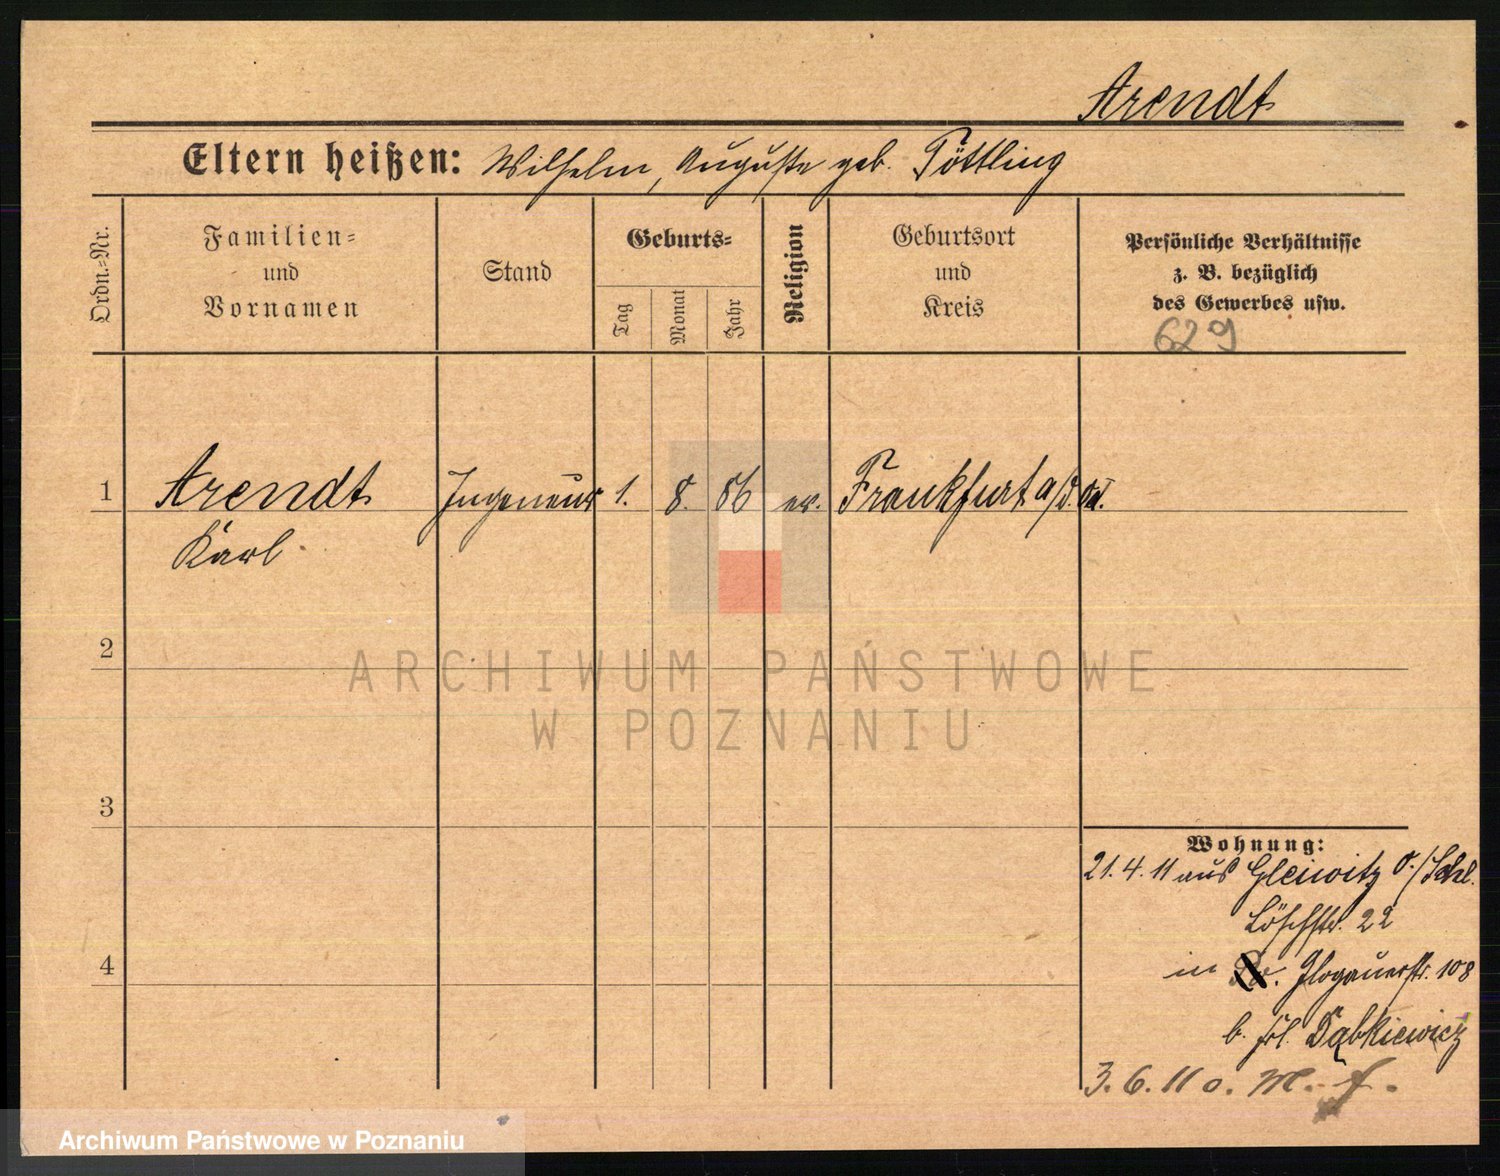 Arendt
Eltern heißen: Wilhelm, Auguste geb. Töttling
Ordn.=Nr.
Familien=
und
Vornamen
Stand
Geburts=
Tag
Monat
Jahr
Religion
Geburtsort
und
Kreis
Persönliche Verhältnisse
z. B. bezüglich
des Gewerbes usw.
629
1 Arendt Ingeneur 1. 8. 86 ev. Frankfurt a/d. Od.
Karl
2
3
4
Wohnung:
21.4.11 aus Gleiwitz O./Schl.
Löschstr. 22
in Glogauerstr. 108
b. Frl. Dąbkiewicz
3.6.11 o. M. f.
ARCHIWUM PAŃSTWOWE
W POZNANIU
Archiwum Państwowe w Poznaniu